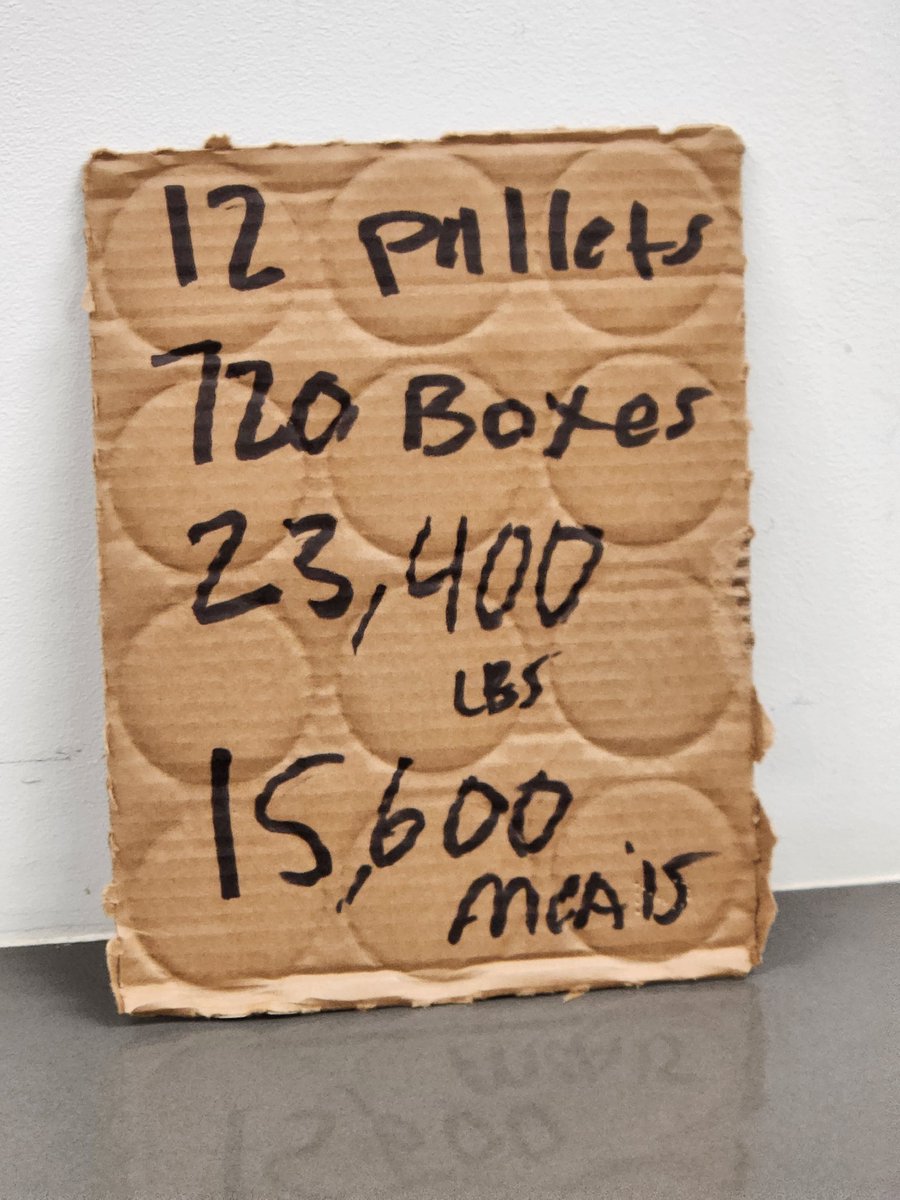 12 pallets
720 Boxes
23,400
LBS
15,600
meals